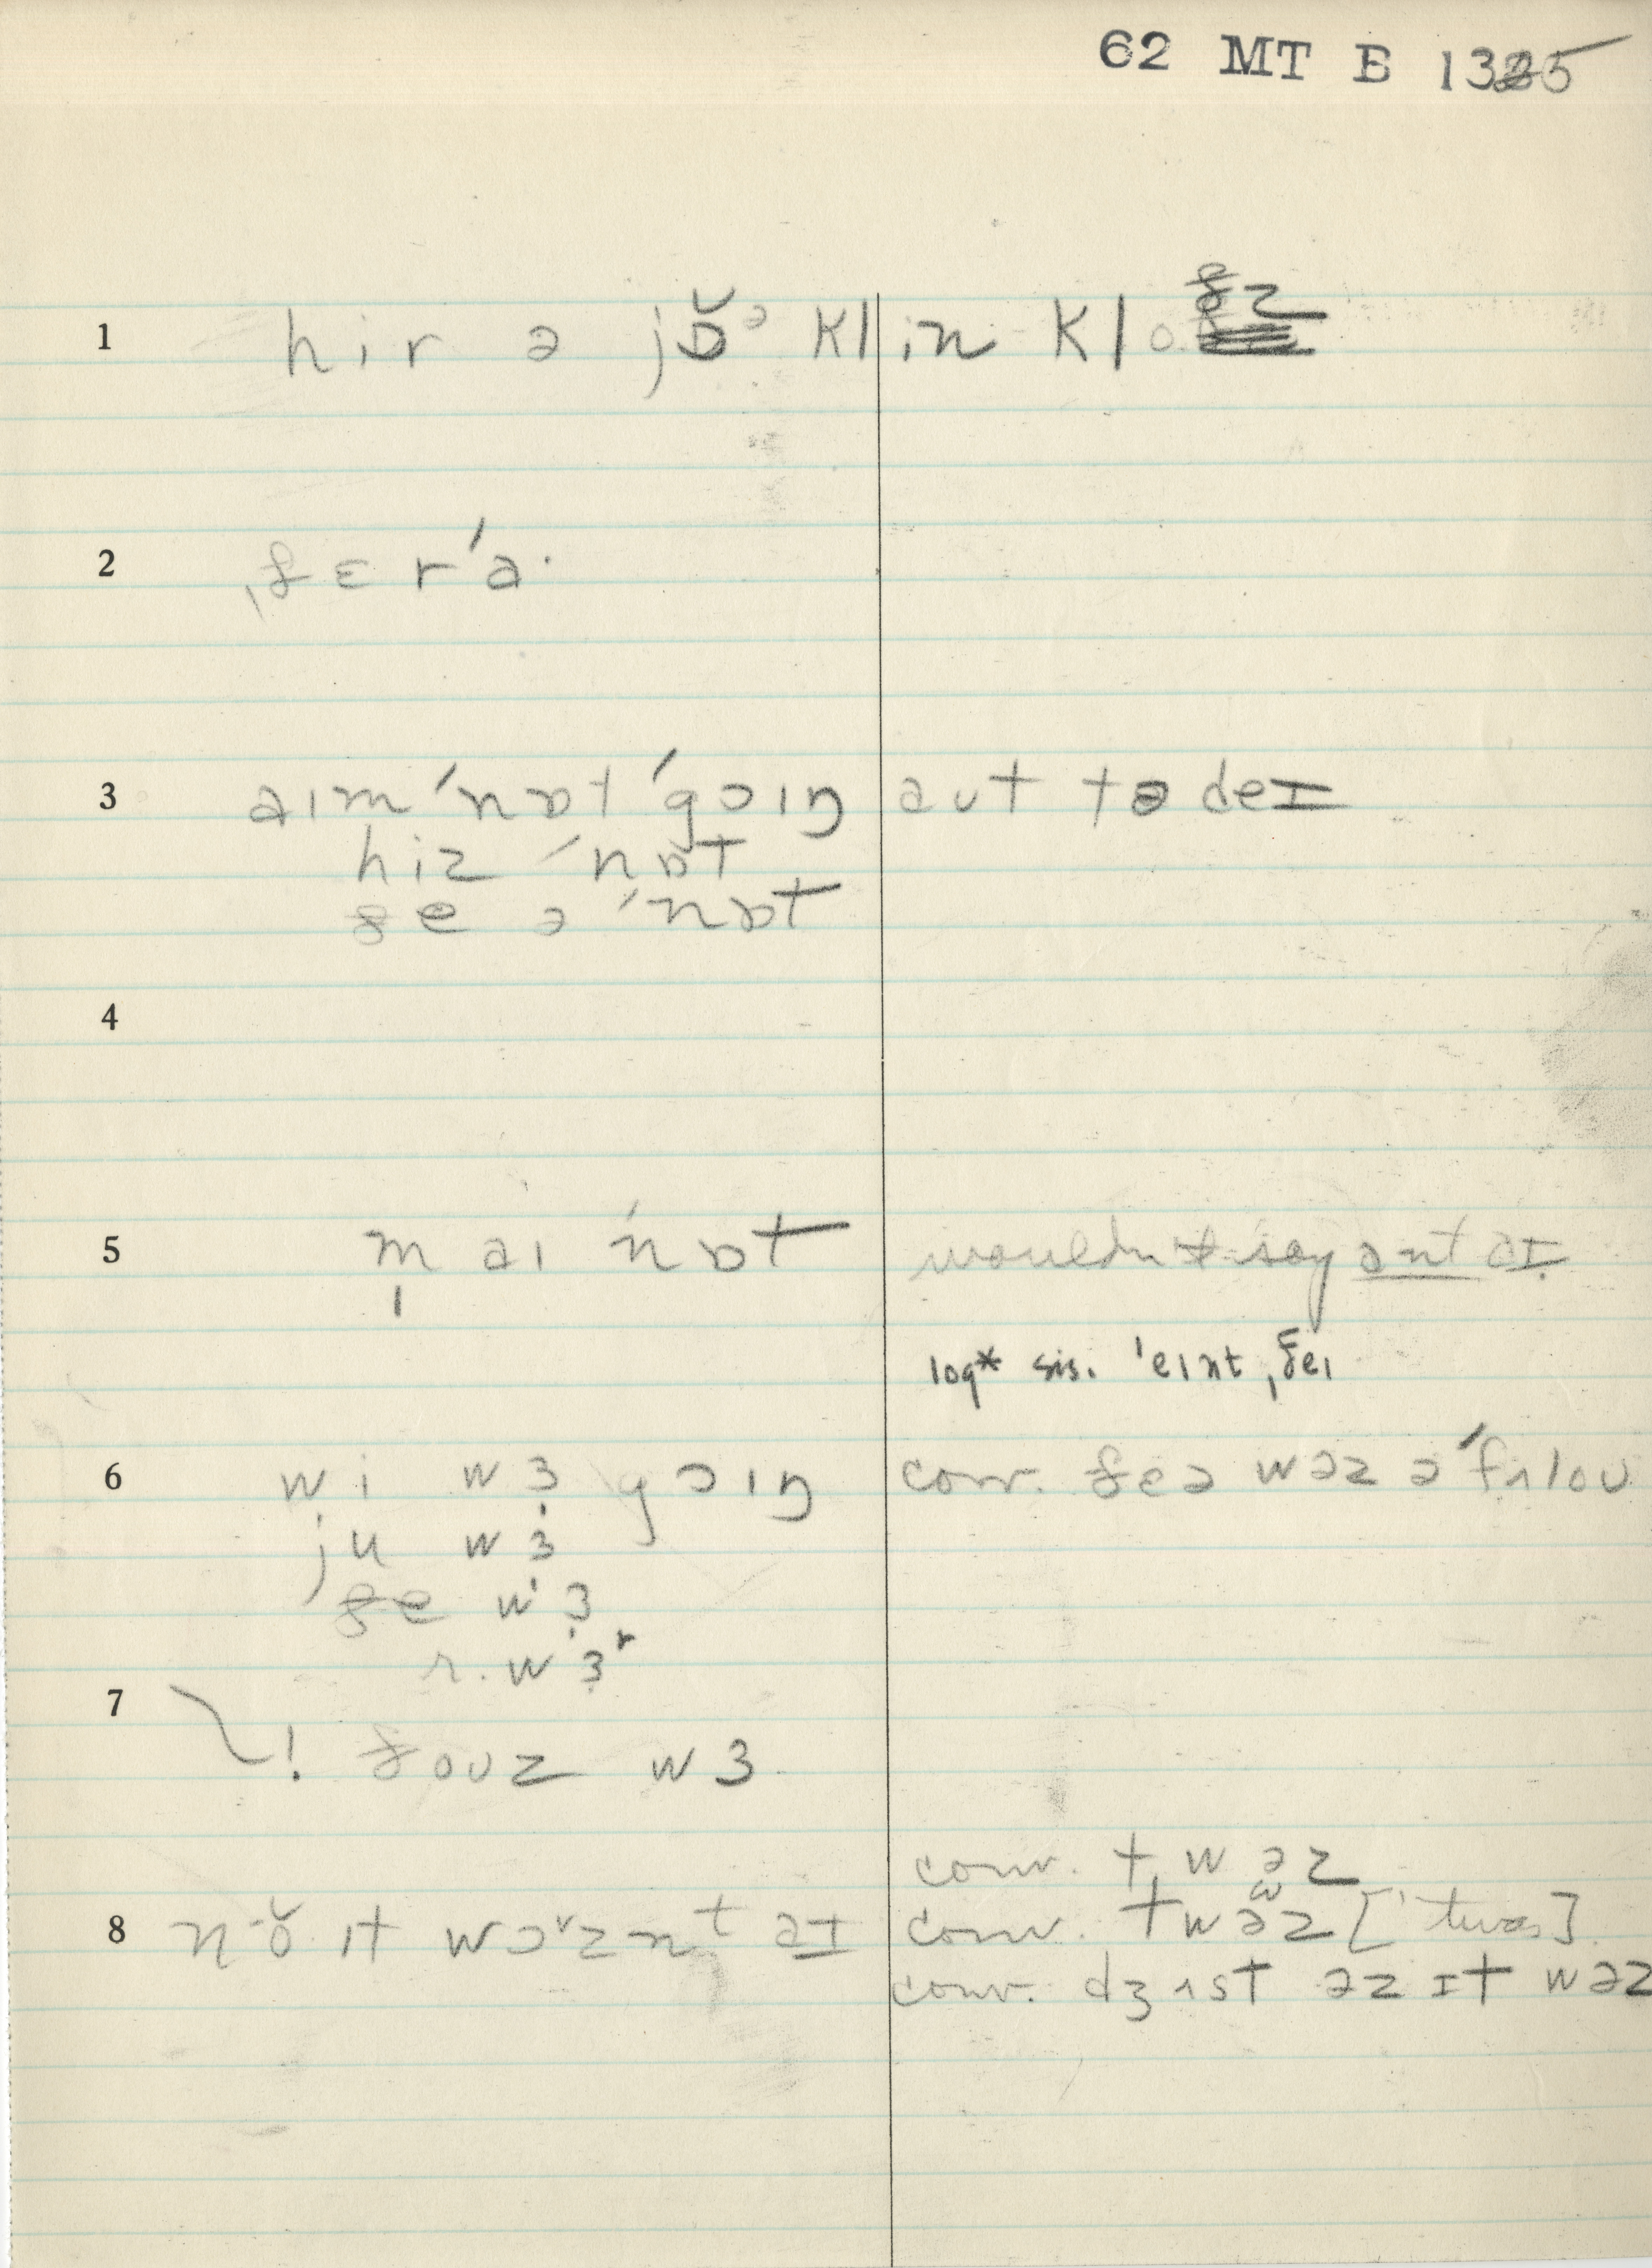 62 MT B 1325
1 hir ə jɒ̆ᵊ klin kloðz
2 ˌðɛr ˈa·
3 aɪm ˈnɒt ˈgoɪŋ aʊt tə deɪ
hiz ˈnɒt
ðe ə ˈnɒt
4
5 m̩ aɪ ˈnɒt wouldn't say ant aɪ
log* sis. ˈeɪnt ˌðeɪ
6 wi wɜ goɪŋ conv. ðeə wəz ə ˈfʌloʊ
ju wɜ
ðe wɜ
r. wɜʳ
7
! ðoʊz wɜ
conv. t wəz
8 nɒ̆ ɪt wɔᵛznt aɪ conv. twəz ['twas]
conv. dʒʌst əz ɪt wəz